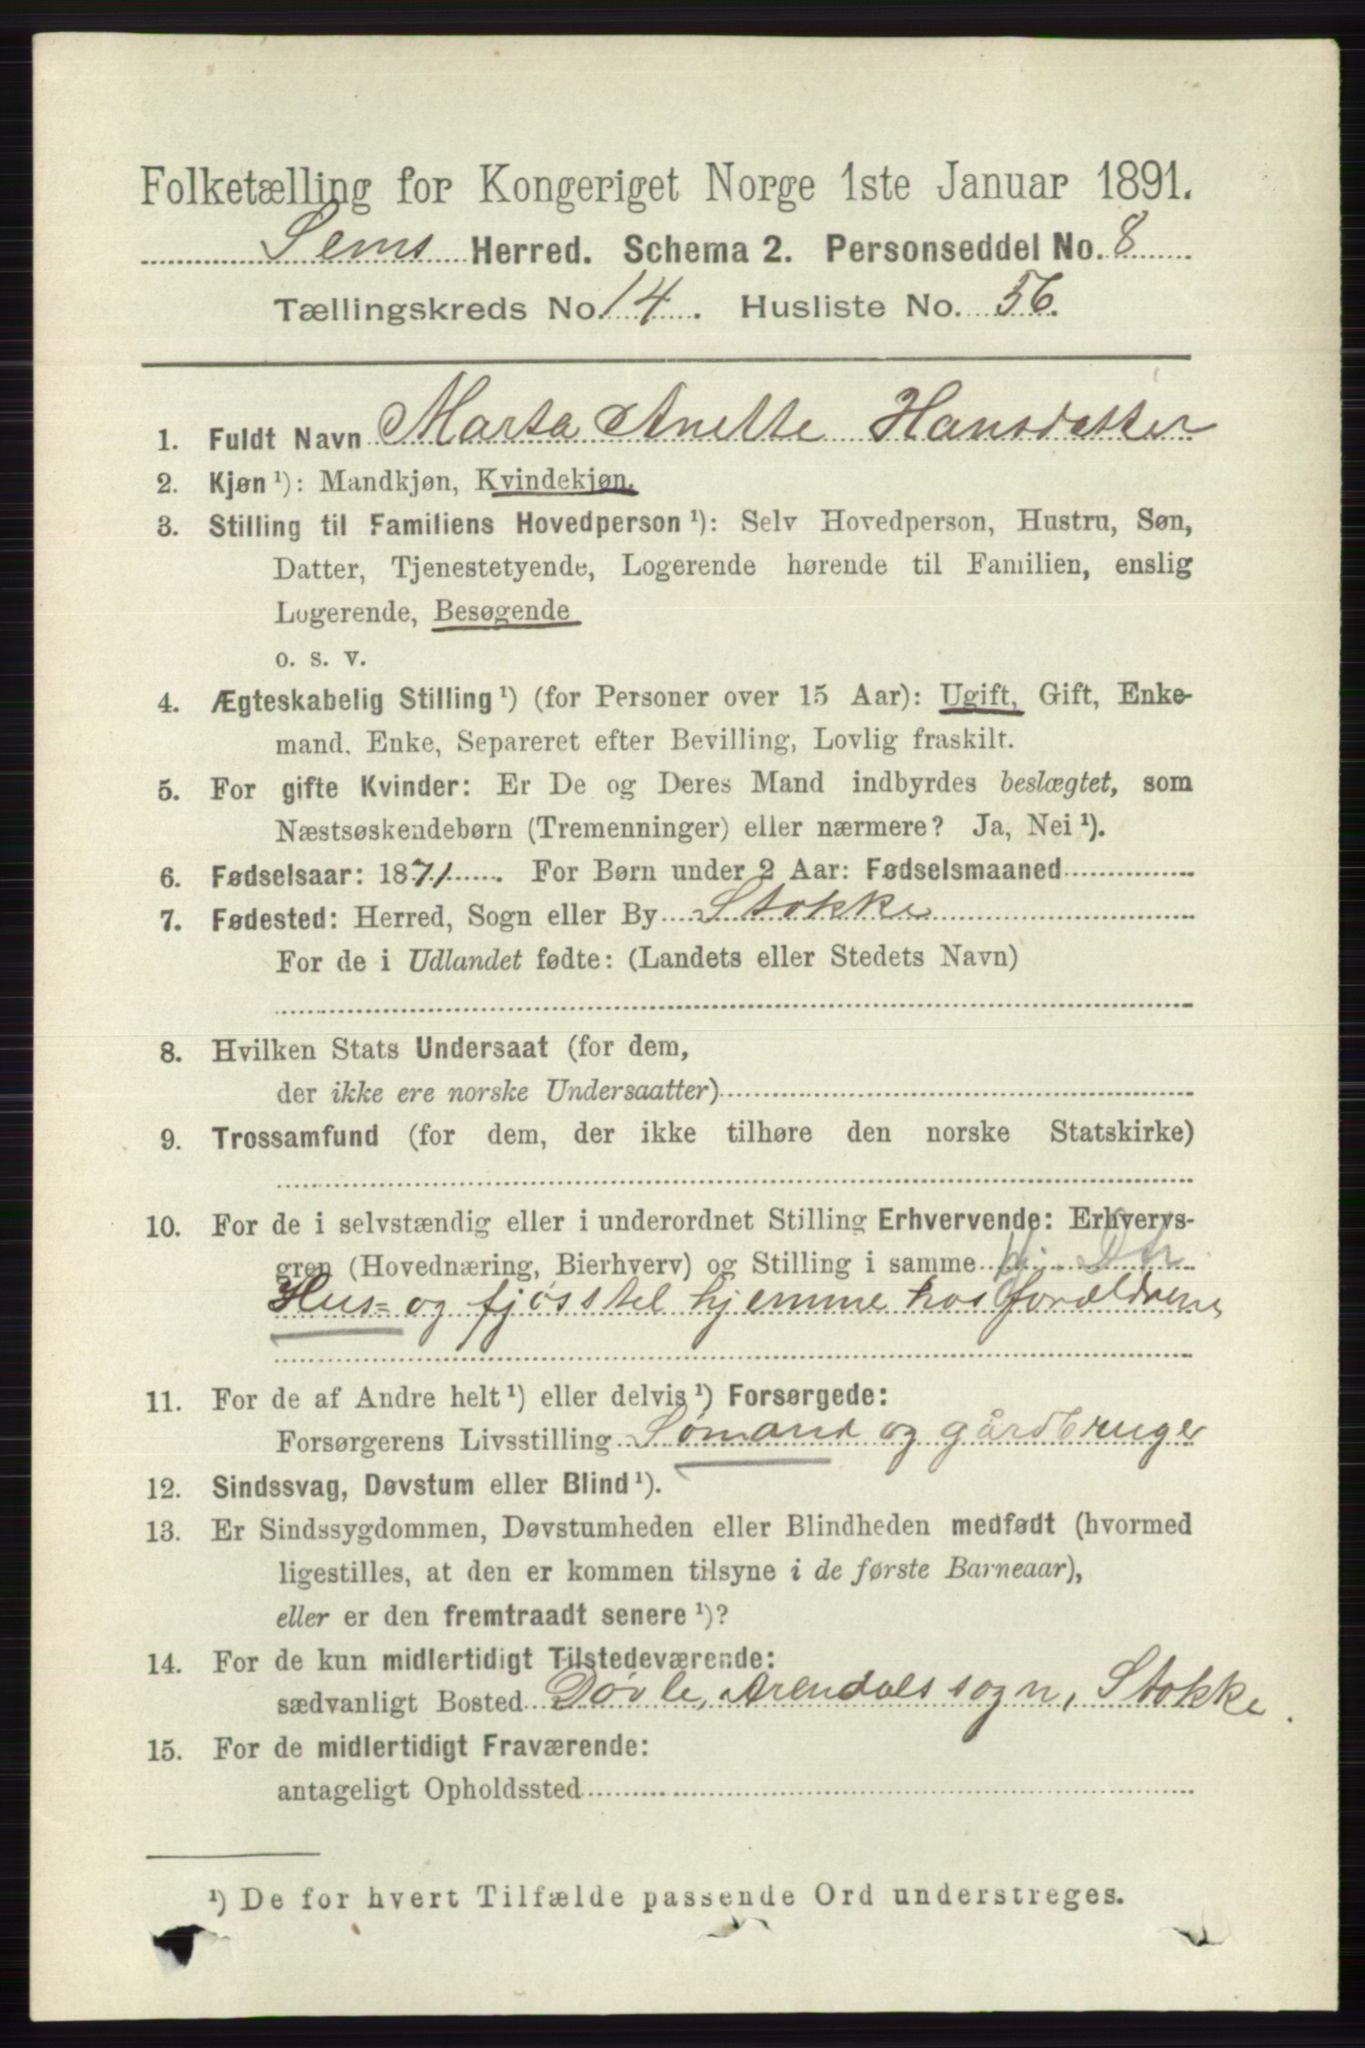 Folketælling for Kongeriget Norge 1ste Januar 1891.
Sems Herred. Schema 2. Personseddel No. 8
Tællingskreds No. 14. Husliste No. 56.
1. Fuldt Navn Marta Anette Hansdatter
2. Kjøn ¹): Mandkjøn, Kvindekjøn.
3. Stilling til Familiens Hovedperson ¹): Selv Hovedperson, Hustru, Søn,
Datter, Tjenestetyende, Logerende hørende til Familien, enslig
Logerende, Besøgende
o. s. v.
4. Ægteskabelig Stilling ¹) (for Personer over 15 Aar): Ugift, Gift, Enke-
mand, Enke, Separeret efter Bevilling, Lovlig fraskilt.
5. For gifte Kvinder: Er De og Deres Mand indbyrdes beslægtet, som
Næstsøskendebørn (Tremenninger) eller nærmere? Ja, Nei ¹).
6. Fødselsaar: 1871. For Børn under 2 Aar: Fødselsmaaned
7. Fødested: Herred, Sogn eller By Stokke
For de i Udlandet fødte: (Landets eller Stedets Navn)
8. Hvilken Stats Undersaat (for dem,
der ikke ere norske Undersaatter)
9. Trossamfund (for dem, der ikke tilhøre den norske Statskirke)
10. For de i selvstændig eller i underordnet Stilling Erhvervende: Erhvervs-
gren (Hovednæring, Bierhverv) og Stilling i samme
Hus- og fjøsstel hjemme hos forældrene
11. For de af Andre helt ¹) eller delvis ¹) Forsørgede:
Forsørgerens Livsstilling Sømand og gårdbruger
12. Sindssvag, Døvstum eller Blind ¹).
13. Er Sindssygdommen, Døvstumheden eller Blindheden medfødt (hvormed
ligestilles, at den er kommen tilsyne i de første Barneaar),
eller er den fremtraadt senere ¹)?
14. For de kun midlertidigt Tilstedeværende:
sædvanligt Bosted Døvle, Arendals sogn, Stokke.
15. For de midlertidigt Fraværende:
antageligt Opholdssted
¹) De for hvert Tilfælde passende Ord understreges.